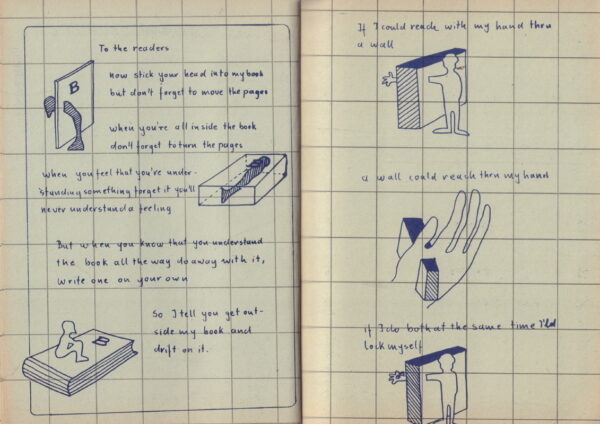 To the readers
now stick your head into my book
but don't forget to move the pages
B
when you're all inside the book
don't forget to turn the pages
when you feel that you're under-
standing something forget it you'll
never understand a feeling
But when you know that you understand
the book all the way do away with it,
write one on your own
So I tell you get out-
side my book and
drift on it.
B
If I could reach with my hand thru
a wall
a wall could reach thru my hand
if I do both at the same time I'ld
lock myself